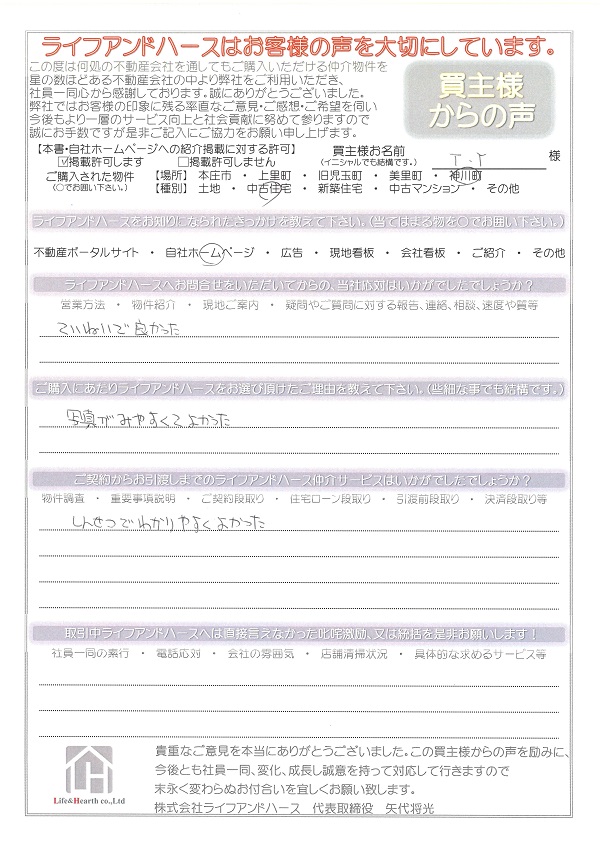 ライフアンドハースはお客様の声を大切にしています。
この度は何処の不動産会社を通してもご購入いただける仲介物件を
星の数ほどある不動産会社の中より弊社をご利用いただき、
社員一同心から感謝しております。誠にありがとうございました。
弊社ではお客様の印象に残る率直なご意見・ご感想・ご希望を伺い
今後もより一層のサービス向上と社会貢献に努めて参りますので
誠にお手数ですが是非ご記入にご協力をお願い申し上げます。
買主様
からの声
【本書・自社ホームページへの紹介掲載に対する許可】
☑掲載許可します □掲載許可しません
買主様お名前
(イニシャルでも結構です。)
T.T 様
ご購入された物件
(○でお囲い下さい。)
【場所】 本庄市 ・ 上里町 ・ 旧児玉町 ・ 美里町 ・ 神川町
【種別】 土地 ・ 中古住宅 ・ 新築住宅 ・ 中古マンション ・ その他
ライフアンドハースをお知りになられたきっかけを教えて下さい。(当てはまる物を○でお囲い下さい。)
不動産ポータルサイト ・ 自社ホームページ ・ 広告 ・ 現地看板 ・ 会社看板 ・ ご紹介 ・ その他
ライフアンドハースへお問合せをいただいてからの、当社応対はいかがでしたでしょうか？
営業方法 ・ 物件紹介 ・ 現地ご案内 ・ 疑問やご質問に対する報告、連絡、相談、速度や質等
ていねいで良かった
ご購入にあたりライフアンドハースをお選び頂けたご理由を教えて下さい。(些細な事でも結構です。)
写真がみやすくてよかった
ご契約からお引渡しまでのライフアンドハース仲介サービスはいかがでしたでしょうか？
物件調査 ・ 重要事項説明 ・ ご契約段取り ・ 住宅ローン段取り ・ 引渡前段取り ・ 決済段取り等
しんせつでわかりやすくよかった
取引中ライフアンドハースへは直接言えなかった叱咤激励、又は統括を是非お願いします！
社員一同の素行 ・ 電話応対 ・ 会社の雰囲気 ・ 店舗清掃状況 ・ 具体的な求めるサービス等
貴重なご意見を本当にありがとうございました。この買主様からの声を励みに、
今後とも社員一同、変化、成長し誠意を持って対応して行きますので
末永く変わらぬお付合いを宜しくお願い致します。
Life&Hearth co.,Ltd
株式会社ライフアンドハース 代表取締役 矢代将光